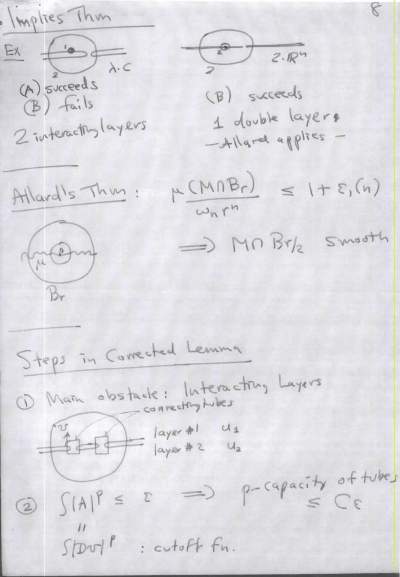 8
Implies Thm
Ex
2
λ·C
2
2·ℝⁿ
(A) succeeds
(B) fails
2 interacting layers
(B) succeeds
1 double layer
— Allard applies —
Allard's Thm : μ(M∩Br) / ωₙ rⁿ ≤ 1 + ε₁(n)
⟹ M∩Br/2 smooth
μ
Br
Steps in Corrected Lemma
① Main obstacle: Interacting Layers
connecting tubes
layer #1 u₁
layer #2 u₂
② ∫|A|ᵖ ≤ ε ⟹ p-capacity of tubes
≤ Cε
||
∫|Dν|ᵖ : cutoff fn.